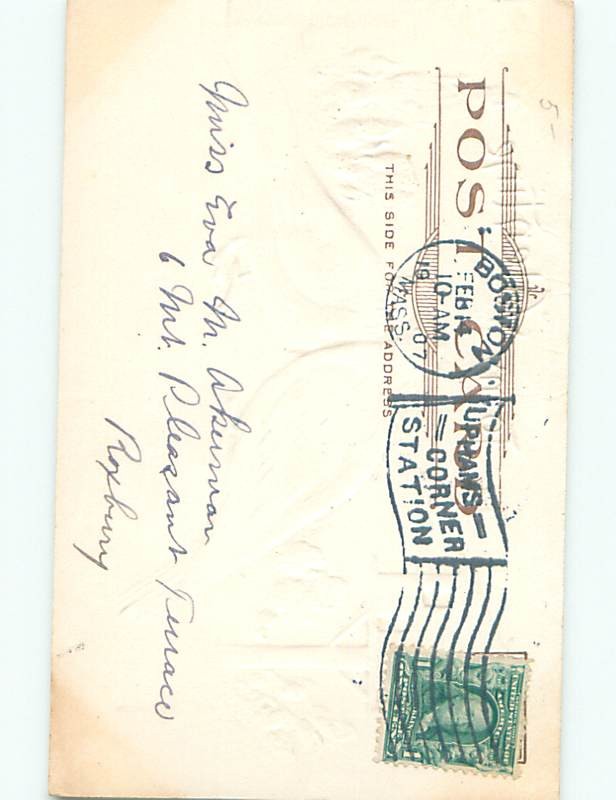 5-
POST CARD
THIS SIDE FOR THE ADDRESS
BOSTON,
FEB 14
10-AM
19 07
MASS.
UPHAMS
CORNER
STATION
Miss Eva M. Akerman
6 Mt. Pleasant Terrace
Roxbury